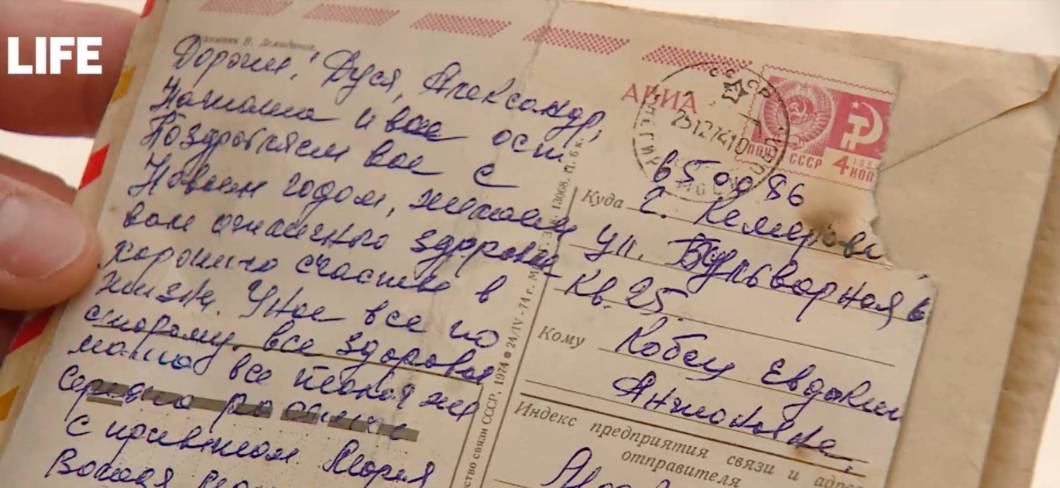 LIFE
Дорогии! Дуся, Александр,
Наташа и вас ост.
Поздравляем вас с
Новым годом, желаем
вам отличного здоровья
хорошего счастие в
жизне. У нас все по
старому, все здоровы
мама все такая же
с приветом Мария
АВИА
СССР
25127410
ПОЧТА СССР
4 КОП
650086
Куда г. Кемерово
ул. Бульварная
кв. 25.
Кому Кобец Евдокии
Антоновне,
Индекс предприятия связи и адрес
отправителя
связи СССР. 1974 24/IV-74 г.